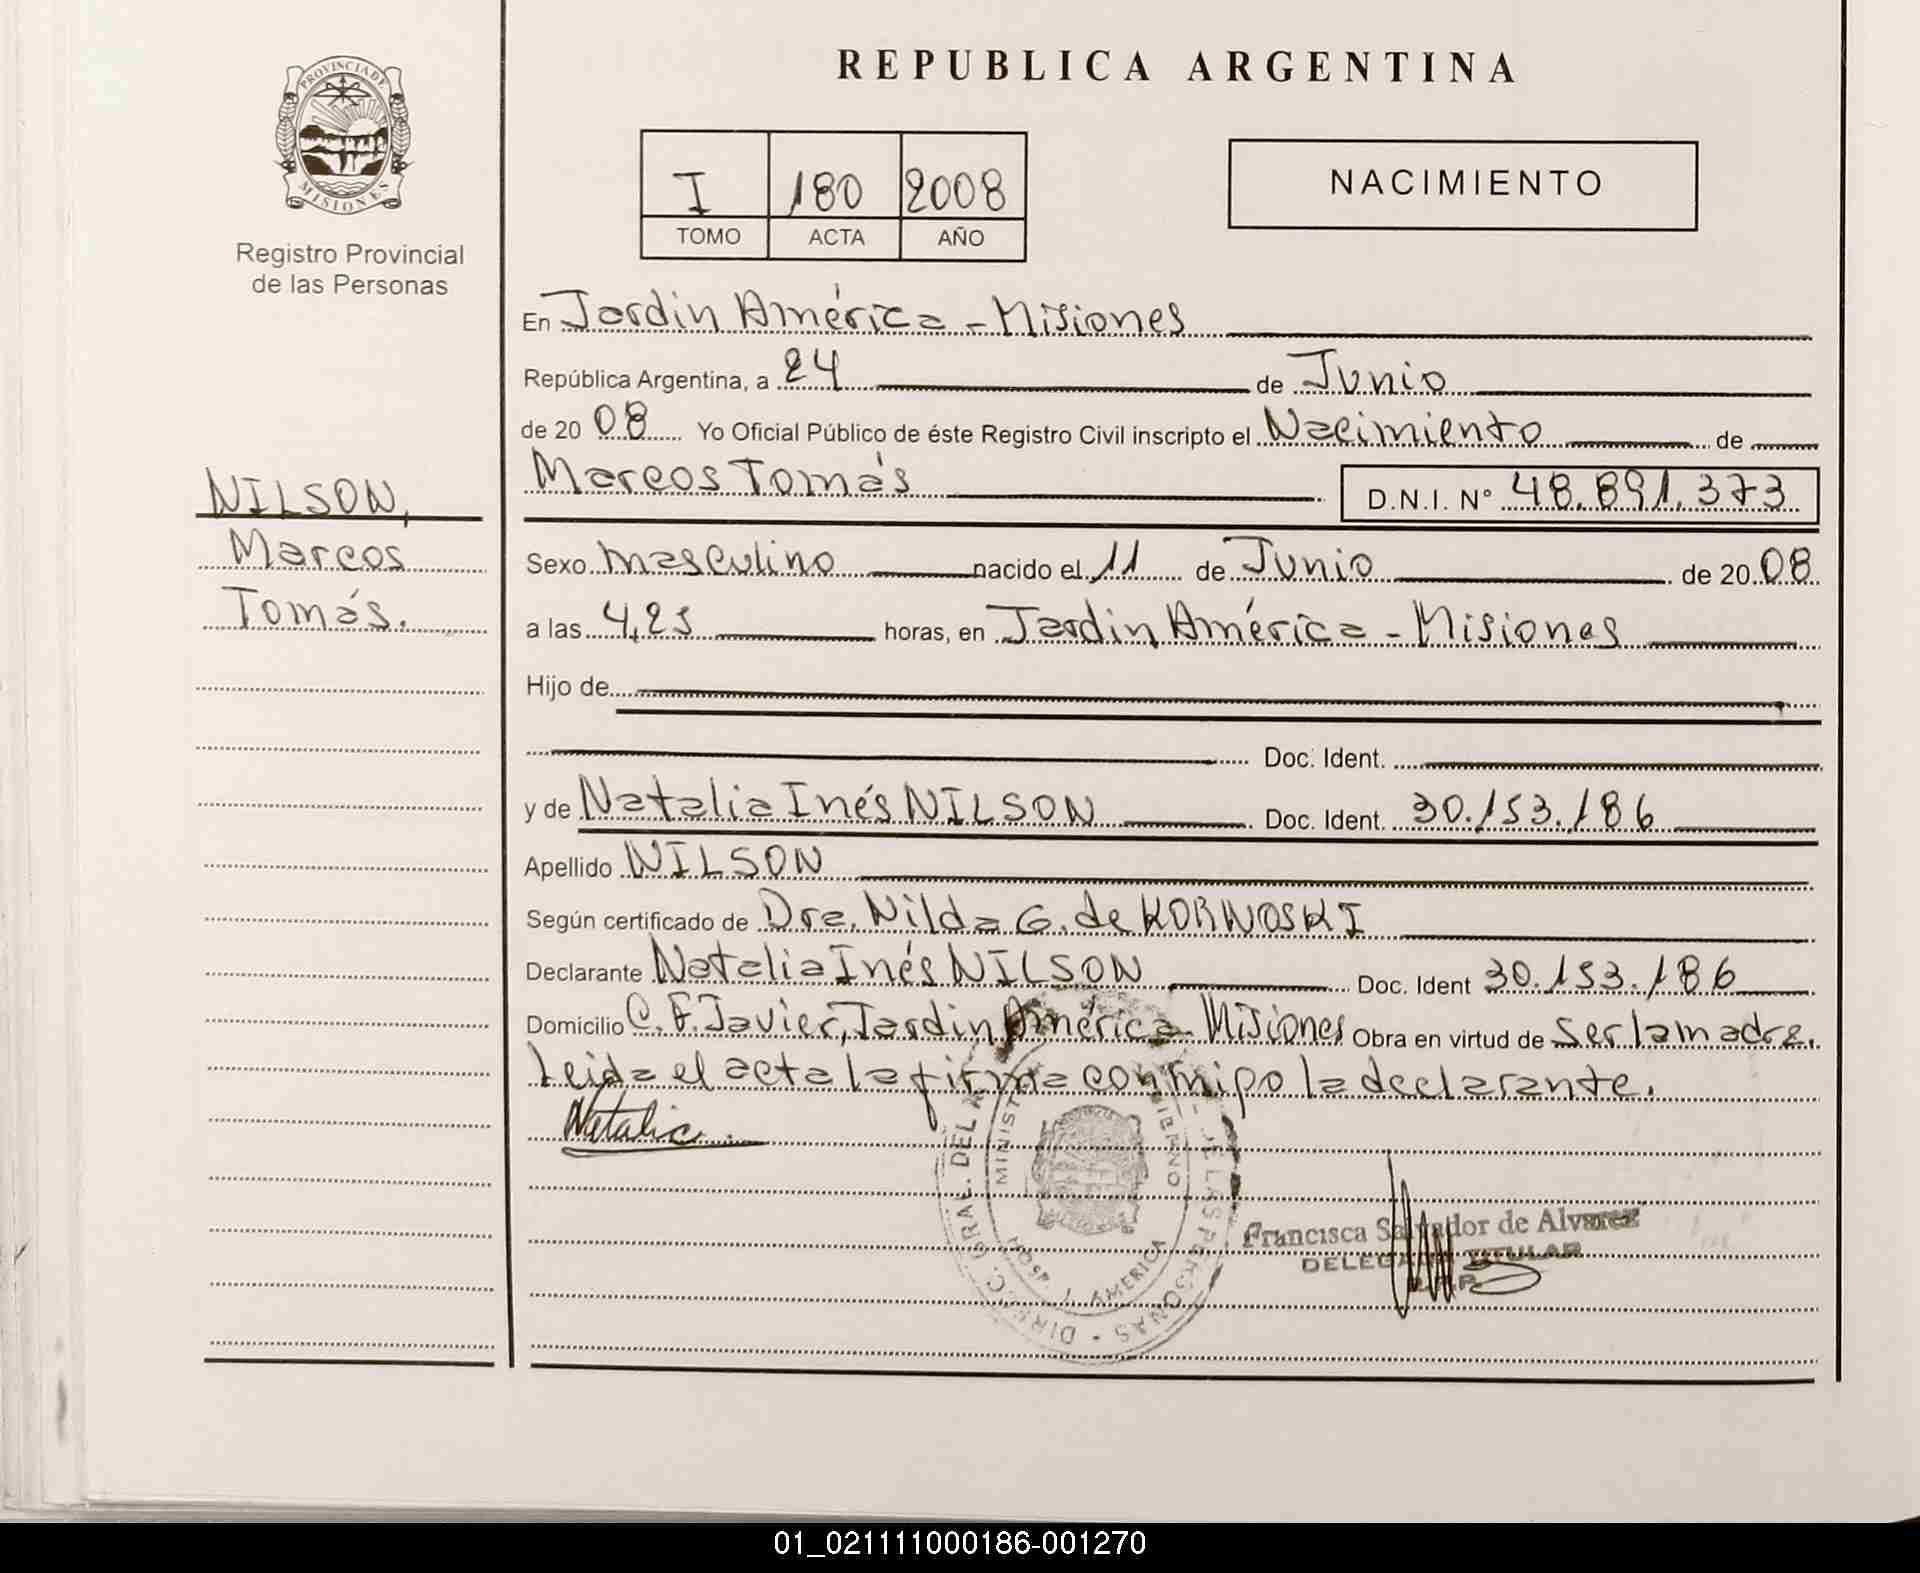 REPUBLICA ARGENTINA
PROVINCIA DE
MISIONES
Registro Provincial
de las Personas
I 180 2008
TOMO ACTA AÑO
NACIMIENTO
NILSON,
Marcos
Tomás.
En Jardin América - Misiones
República Argentina, a 24 de Junio
de 20 08 Yo Oficial Público de éste Registro Civil inscripto el Nacimiento de
Marcos Tomás D.N.I. N° 48.891.373
Sexo masculino nacido el 11 de Junio de 20 08
a las 4,25 horas, en Jardin América - Misiones
Hijo de
Doc. Ident.
y de Natalia Inés NILSON Doc. Ident. 30.153.186
Apellido NILSON
Según certificado de Dra. Nilda G. de KORNOSKI
Declarante Natalia Inés NILSON Doc. Ident 30.153.186
Domicilio C. F. Javier, Jardin América - Misiones Obra en virtud de ser la madre.
Leida el acta la firma conmipo la declarante.
Natalia.
DIRECC. GRAL. DEL DE LAS PERSONAS
HOSP. J. AMERICA
Francisca Salvador de Alvarez
DELEGADA TITULAR
01_021111000186-001270